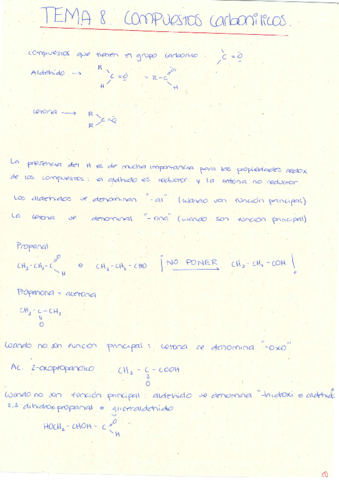 TEMA 8. COMPUESTOS carbonílicos.
compuestos que tienen el grupo carbonilo C=O
Aldehído → R H C=O = R-C O H
cetona → R R C=O
La presencia del H es de mucha importancia para las propiedades redox
de los compuestos: el aldhido es reductor y la cetona no reductor
Los aldehidos se denominan "-al" (cuando son función principal)
La cetona se denominal "-ona" (cuando son función principal)
Propanal
CH3-CH2-C O H o CH3-CH2-CHO ¡NO PONER CH3-CH2-COH!
Propanona = acetona
CH3-C-CH3
O
Cuando no son función principal: cetona se denomina "-oxo"
Ac. 2-oxopropanoico CH3-C-COOH
O
Cuando no son función principal: aldehido se denomina
2,3 dihidroxipropanal o gliceraldehido
HOCH2-CHOH-C O H